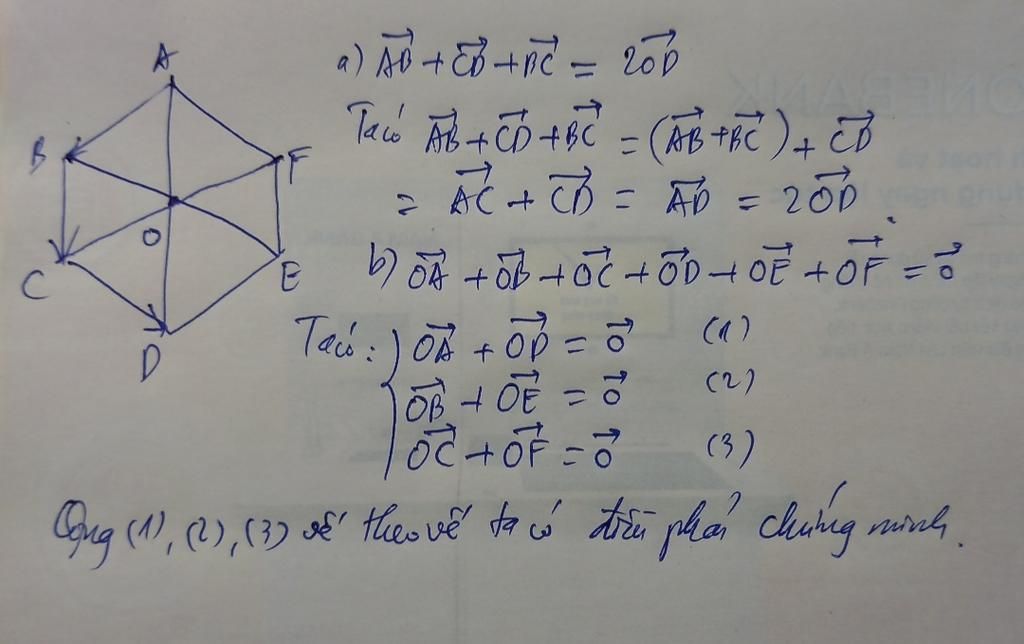 A
B
F
O
C
E
D
a) \overrightarrow{AB} + \overrightarrow{CD} + \overrightarrow{BC} = 2\overrightarrow{OD}
Ta có \overrightarrow{AB} + \overrightarrow{CD} + \overrightarrow{BC} = (\overrightarrow{AB} + \overrightarrow{BC}) + \overrightarrow{CD}
= \overrightarrow{AC} + \overrightarrow{CD} = \overrightarrow{AD} = 2\overrightarrow{OD}.
b) \overrightarrow{OA} + \overrightarrow{OB} + \overrightarrow{OC} + \overrightarrow{OD} + \overrightarrow{OE} + \overrightarrow{OF} = \overrightarrow{0}
Ta có: \overrightarrow{OA} + \overrightarrow{OD} = \overrightarrow{0} (1)
\overrightarrow{OB} + \overrightarrow{OE} = \overrightarrow{0} (2)
\overrightarrow{OC} + \overrightarrow{OF} = \overrightarrow{0} (3)
Cộng (1), (2), (3) vế theo vế ta có điều phải chứng minh.